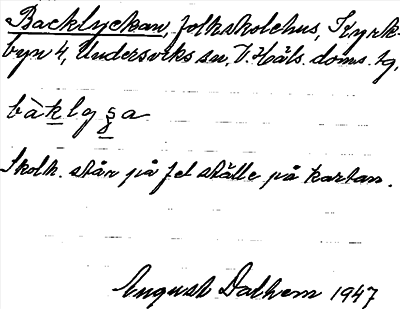 Backlyckan, folkskolehus, Kyrk-
byn 4, Undersviks sn, V. Häls. doms. tg,
bàklyša
Skolh. står på fel ställe på kartan.
August Dalhem 1947